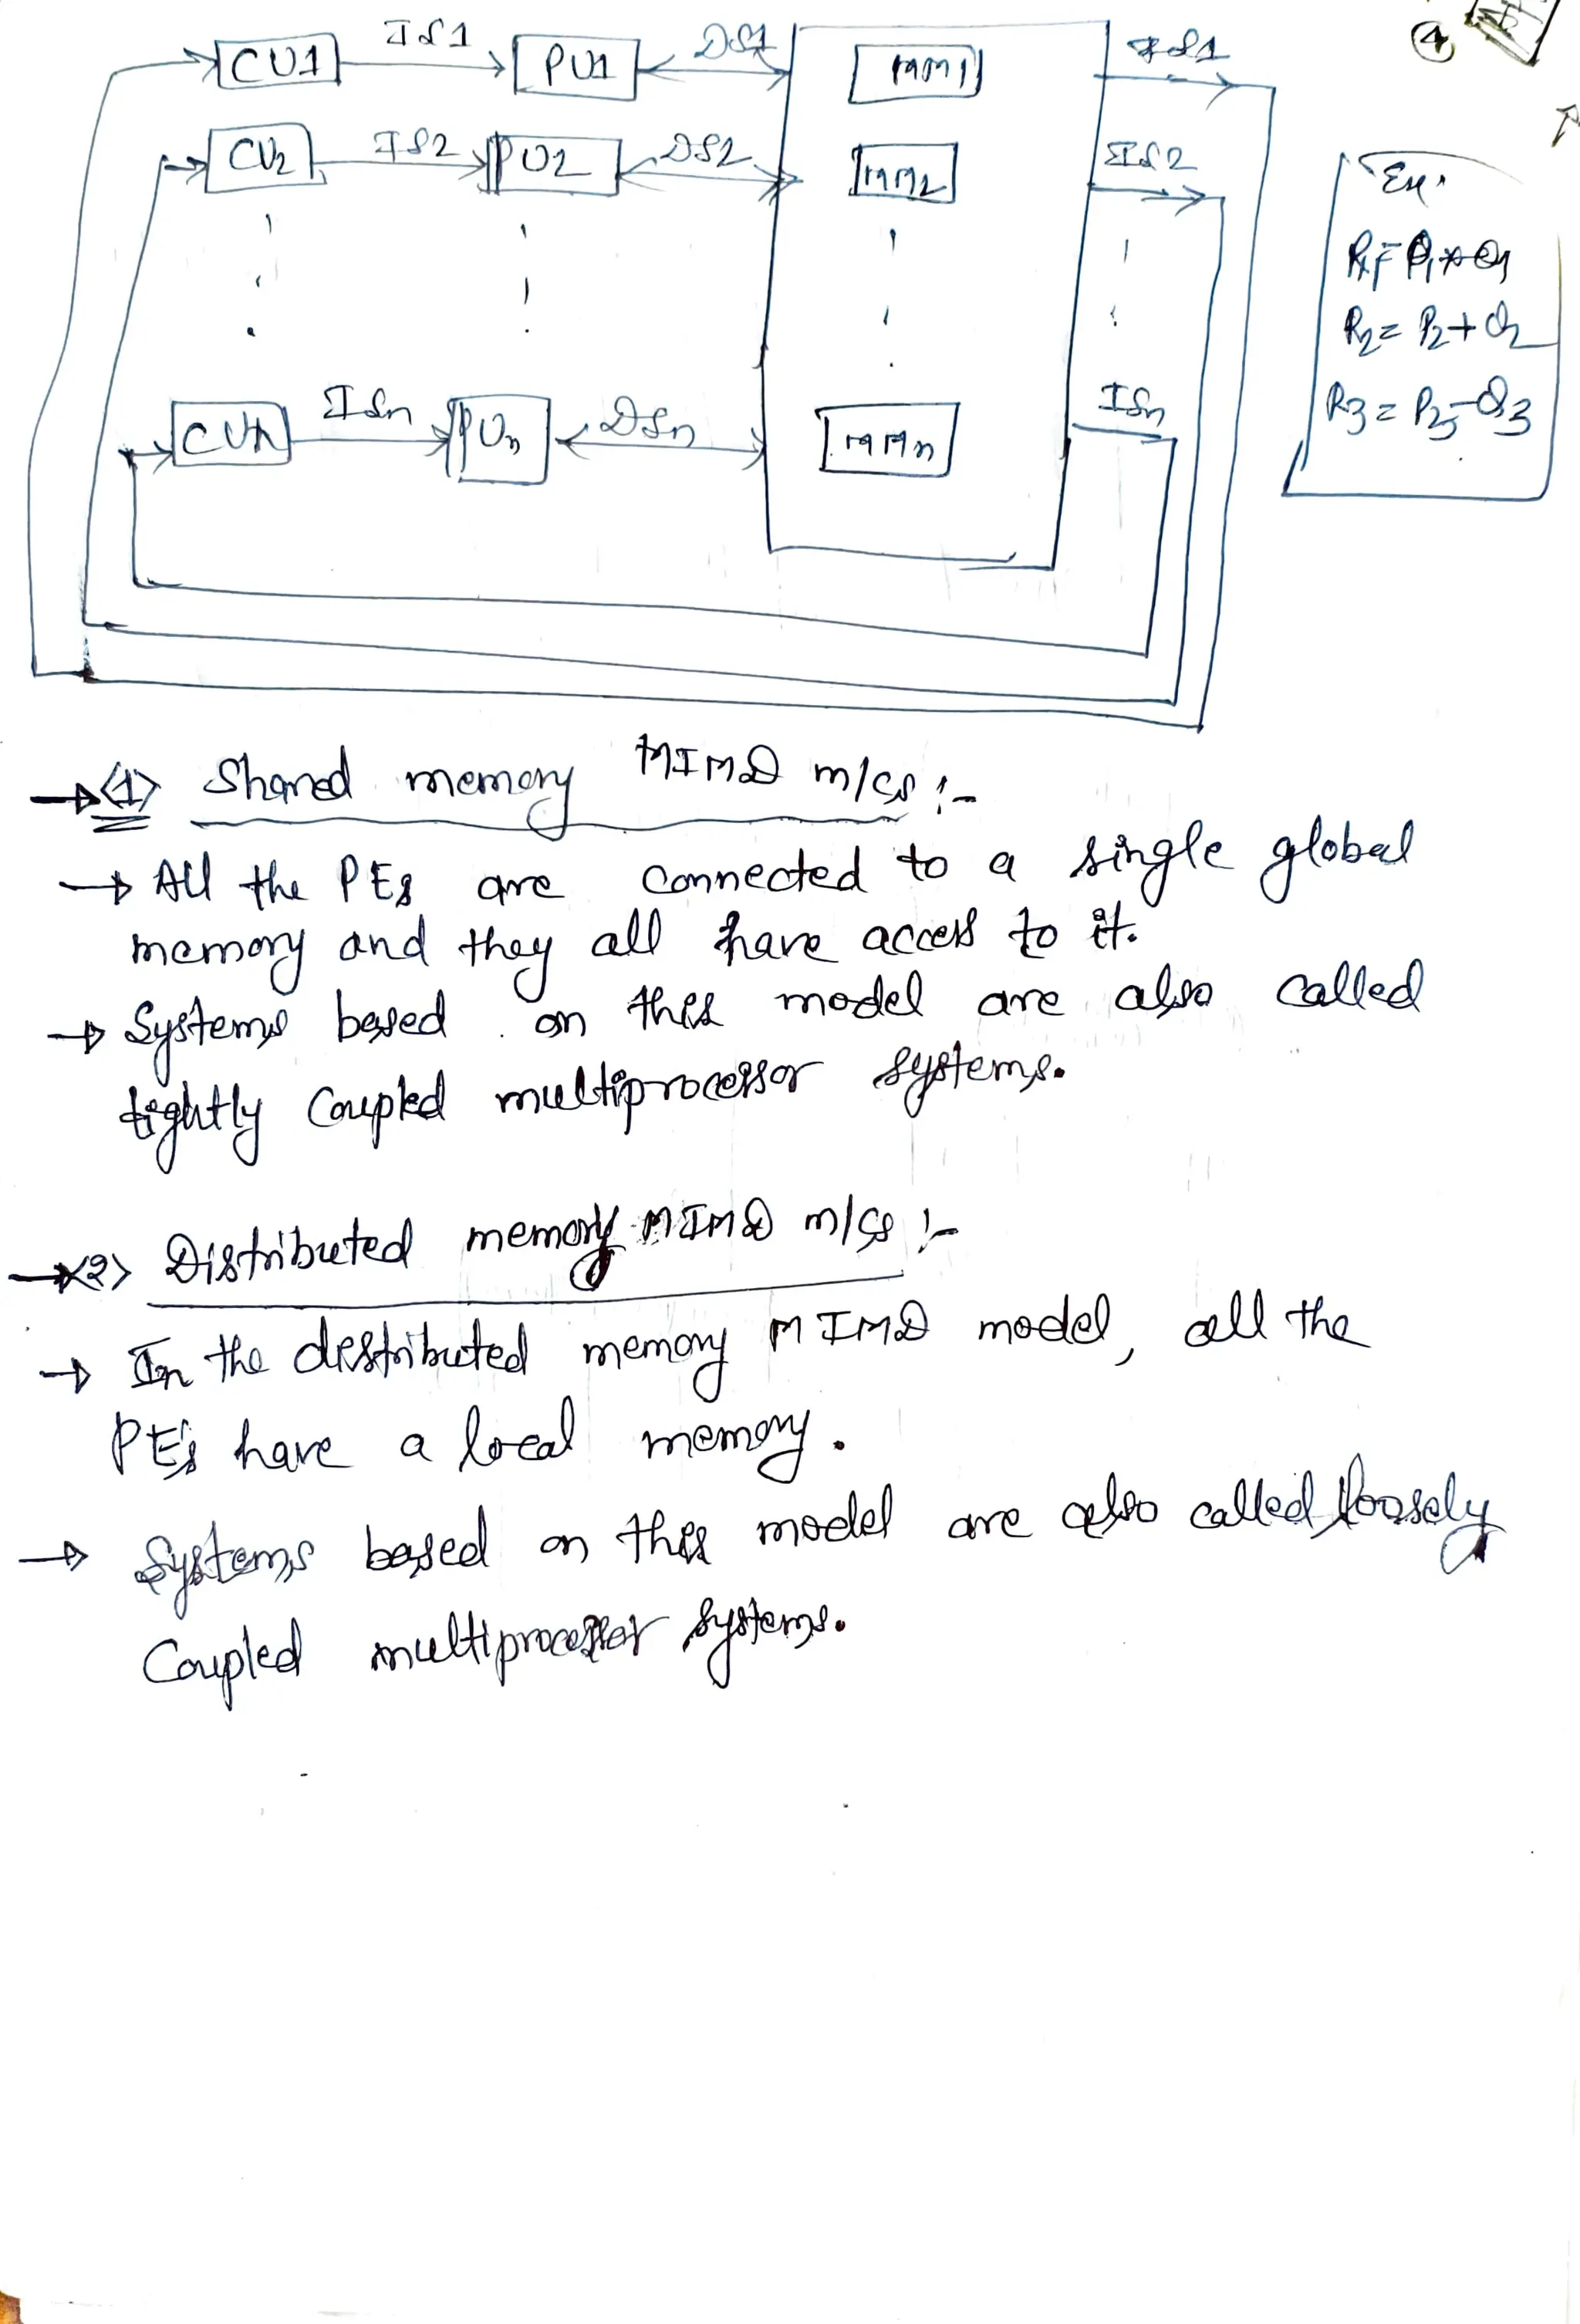 ④
CU1 IS1 PU1 DS1 MM1 IS1
CU2 IS2 PU2 DS2 MM2 IS2
CUn ISn PUn DSn MMn ISn
Ex.
R1 = P1 * Q1
R2 = P2 + Q2
R3 = P3 - Q3
→ <1> Shared memory MIMD m/cs :-
→ All the PEs are connected to a single global
memory and they all have access to it.
→ Systems based on this model are also called
tightly Coupled multiprocessor systems.
→ <2> Distributed memory MIMD m/cs :-
→ In the distributed memory MIMD model, all the
PE's have a local memory.
→ Systems based on this model are also called loosely
Coupled multiprocessor systems.